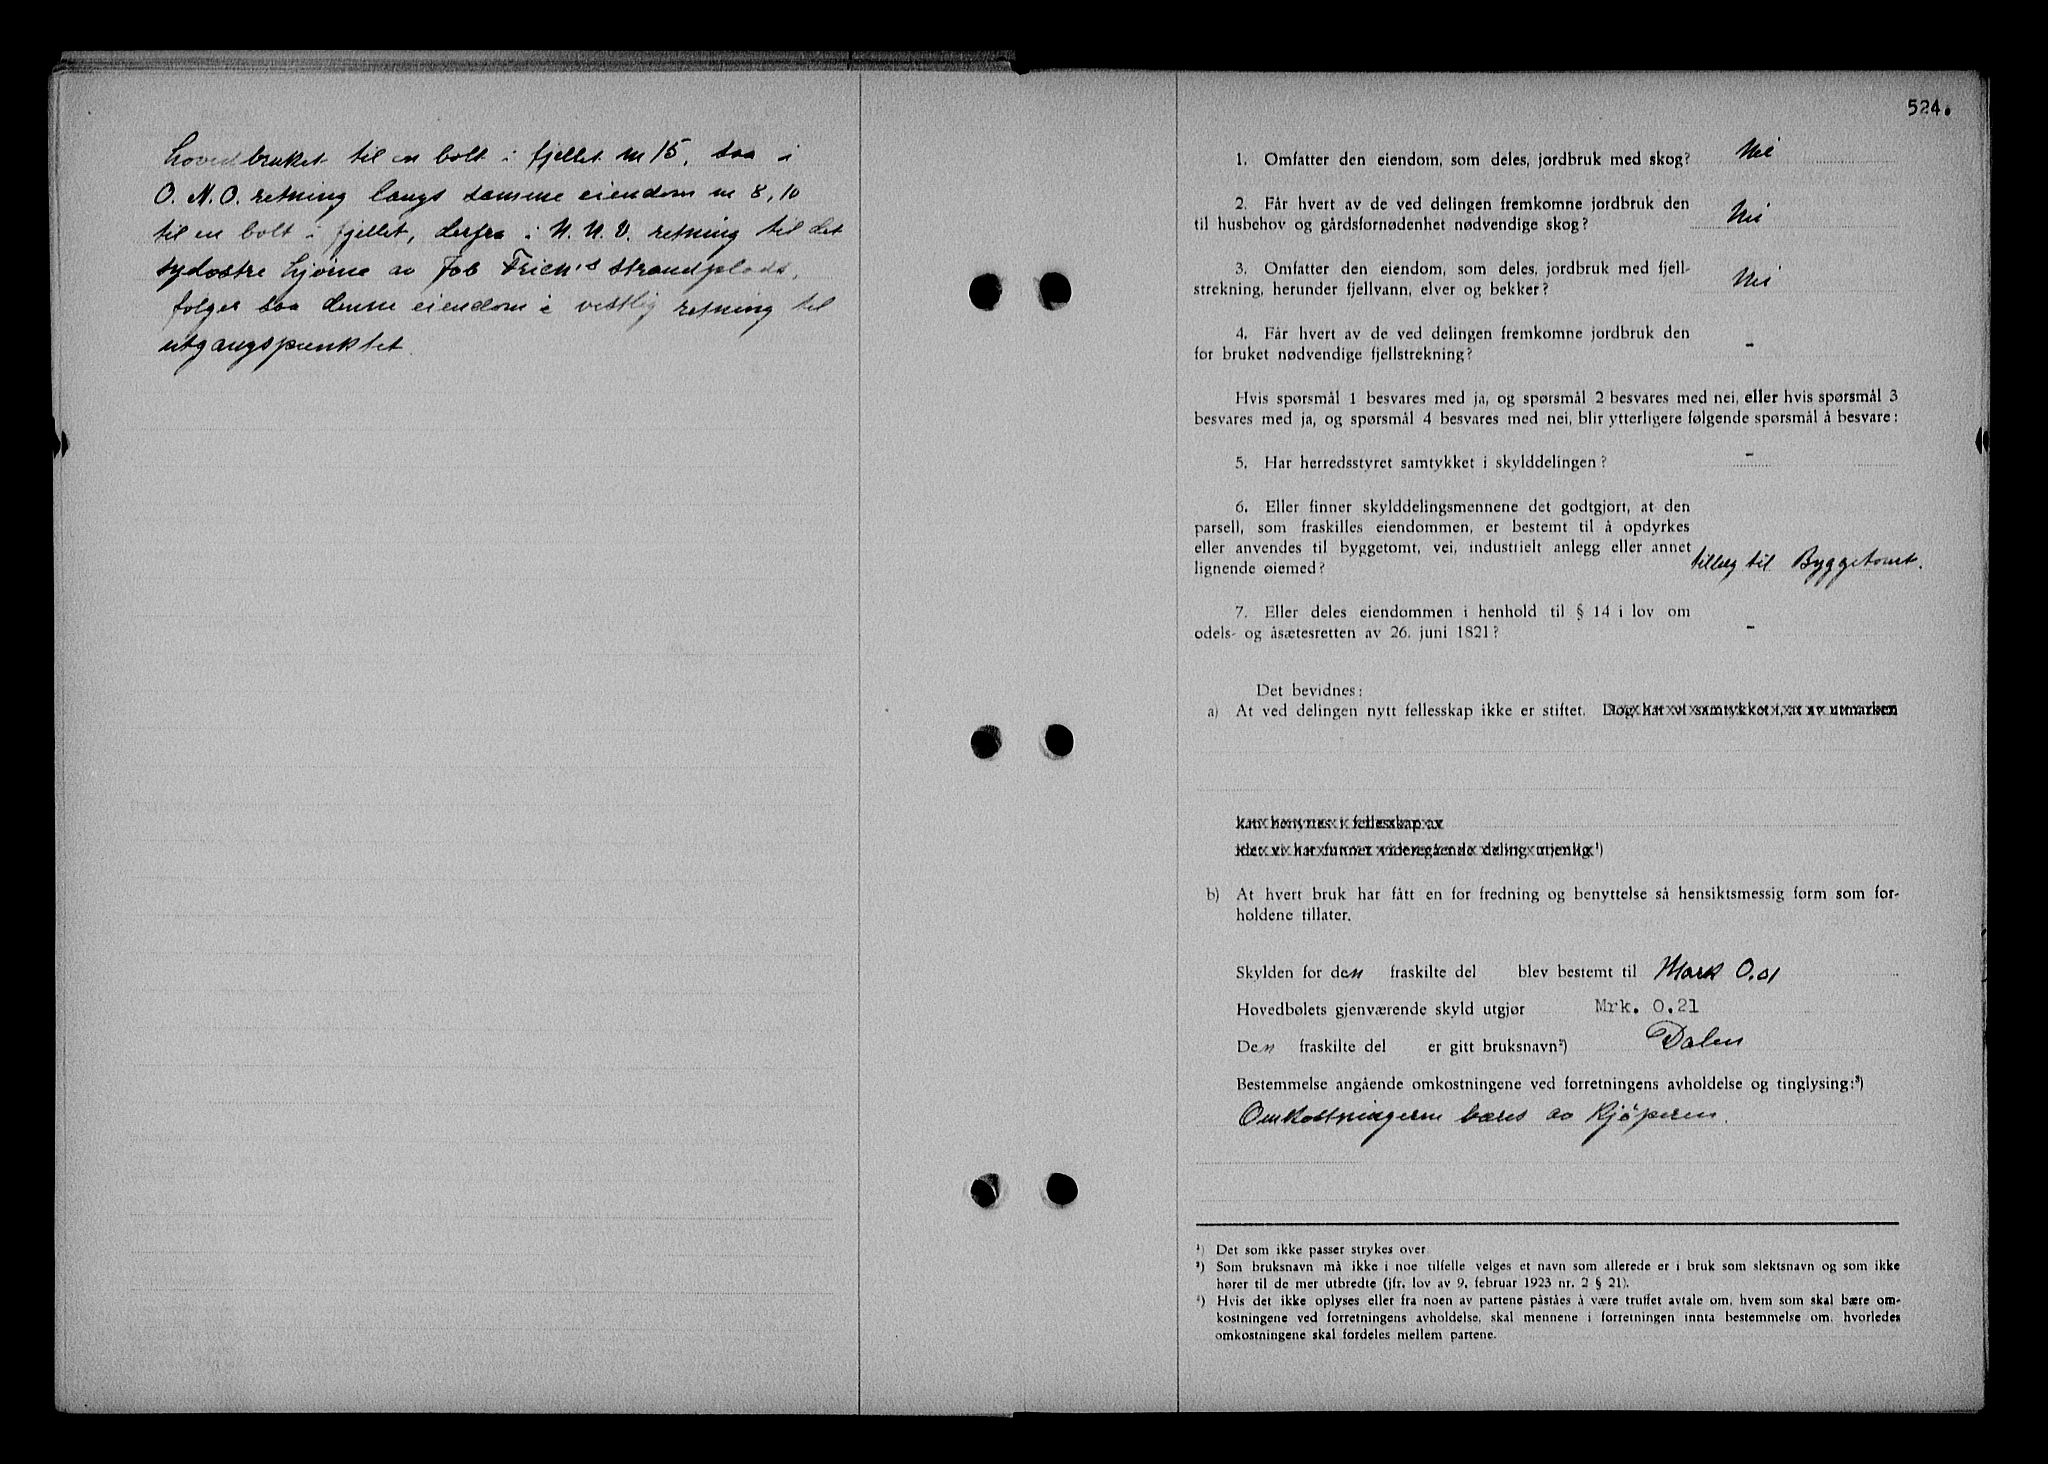 hovedbruket til en bolt i fjellet m 15, saa i
O. N. O. retning langs samme eiendom m 8,10
til en bolt i fjellet, derfra i N. N. V. retning til det
sydøstre hjørne av Job Frich's strandplads,
følger saa denne eiendom i vestlig retning til
utgangspunktet.
524.
1. Omfatter den eiendom, som deles, jordbruk med skog? Nei
2. Får hvert av de ved delingen fremkomne jordbruk den
til husbehov og gårdsfornødenhet nødvendige skog? Nei
3. Omfatter den eiendom, som deles, jordbruk med fjell-
strekning, herunder fjellvann, elver og bekker? Nei
4. Får hvert av de ved delingen fremkomne jordbruk den
for bruket nødvendige fjellstrekning? -
Hvis spørsmål 1 besvares med ja, og spørsmål 2 besvares med nei, eller hvis spørsmål 3
besvares med ja, og spørsmål 4 besvares med nei, blir ytterligere følgende spørsmål å besvare:
5. Har herredsstyret samtykket i skylddelingen? -
6. Eller finner skylddelingsmennene det godtgjort, at den
parsell, som fraskilles eiendommen, er bestemt til å opdyrkes
eller anvendes til byggetomt, vei, industrielt anlegg eller annet
lignende øiemed? tillæg til Byggetomt.
7. Eller deles eiendommen i henhold til § 14 i lov om
odels- og åsætesretten av 26. juni 1821? -
Det bevidnes:
a) At ved delingen nytt fellesskap ikke er stiftet. Dog har vi samtykket i, at av utmarken
kan benyttes i fellesskap av
idet vi har funnet videregående deling utjenlig ¹)
b) At hvert bruk har fått en for fredning og benyttelse så hensiktsmessig form som for-
holdene tillater.
Skylden for den fraskilte del blev bestemt til Mark 0,01
Hovedbølets gjenværende skyld utgjør Mrk. 0.21
Den fraskilte del er gitt bruksnavn²) Dalen
Bestemmelse angående omkostningene ved forretningens avholdelse og tinglysing:³)
Omkostningerne bæres av Kjøperen.
¹) Det som ikke passer strykes over
²) Som bruksnavn må ikke i noe tilfelle velges et navn som allerede er i bruk som slektsnavn og som ikke
hører til de mer utbredte (jfr. lov av 9. februar 1923 nr. 2 § 21).
³) Hvis det ikke oplyses eller fra noen av partene påståes å være truffet avtale om, hvem som skal bære om-
kostningene ved forretningens avholdelse, skal mennene i forretningen innta bestemmelse om, hvorledes
omkostningene skal fordeles mellem partene.